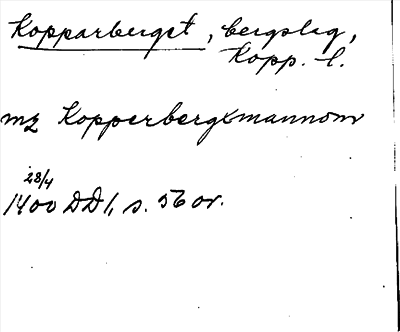 Kopparberget, bergslag,
Kopp. l.
mz Kopperbergxmannom
28/4
1400 DD 1, s. 56 or.